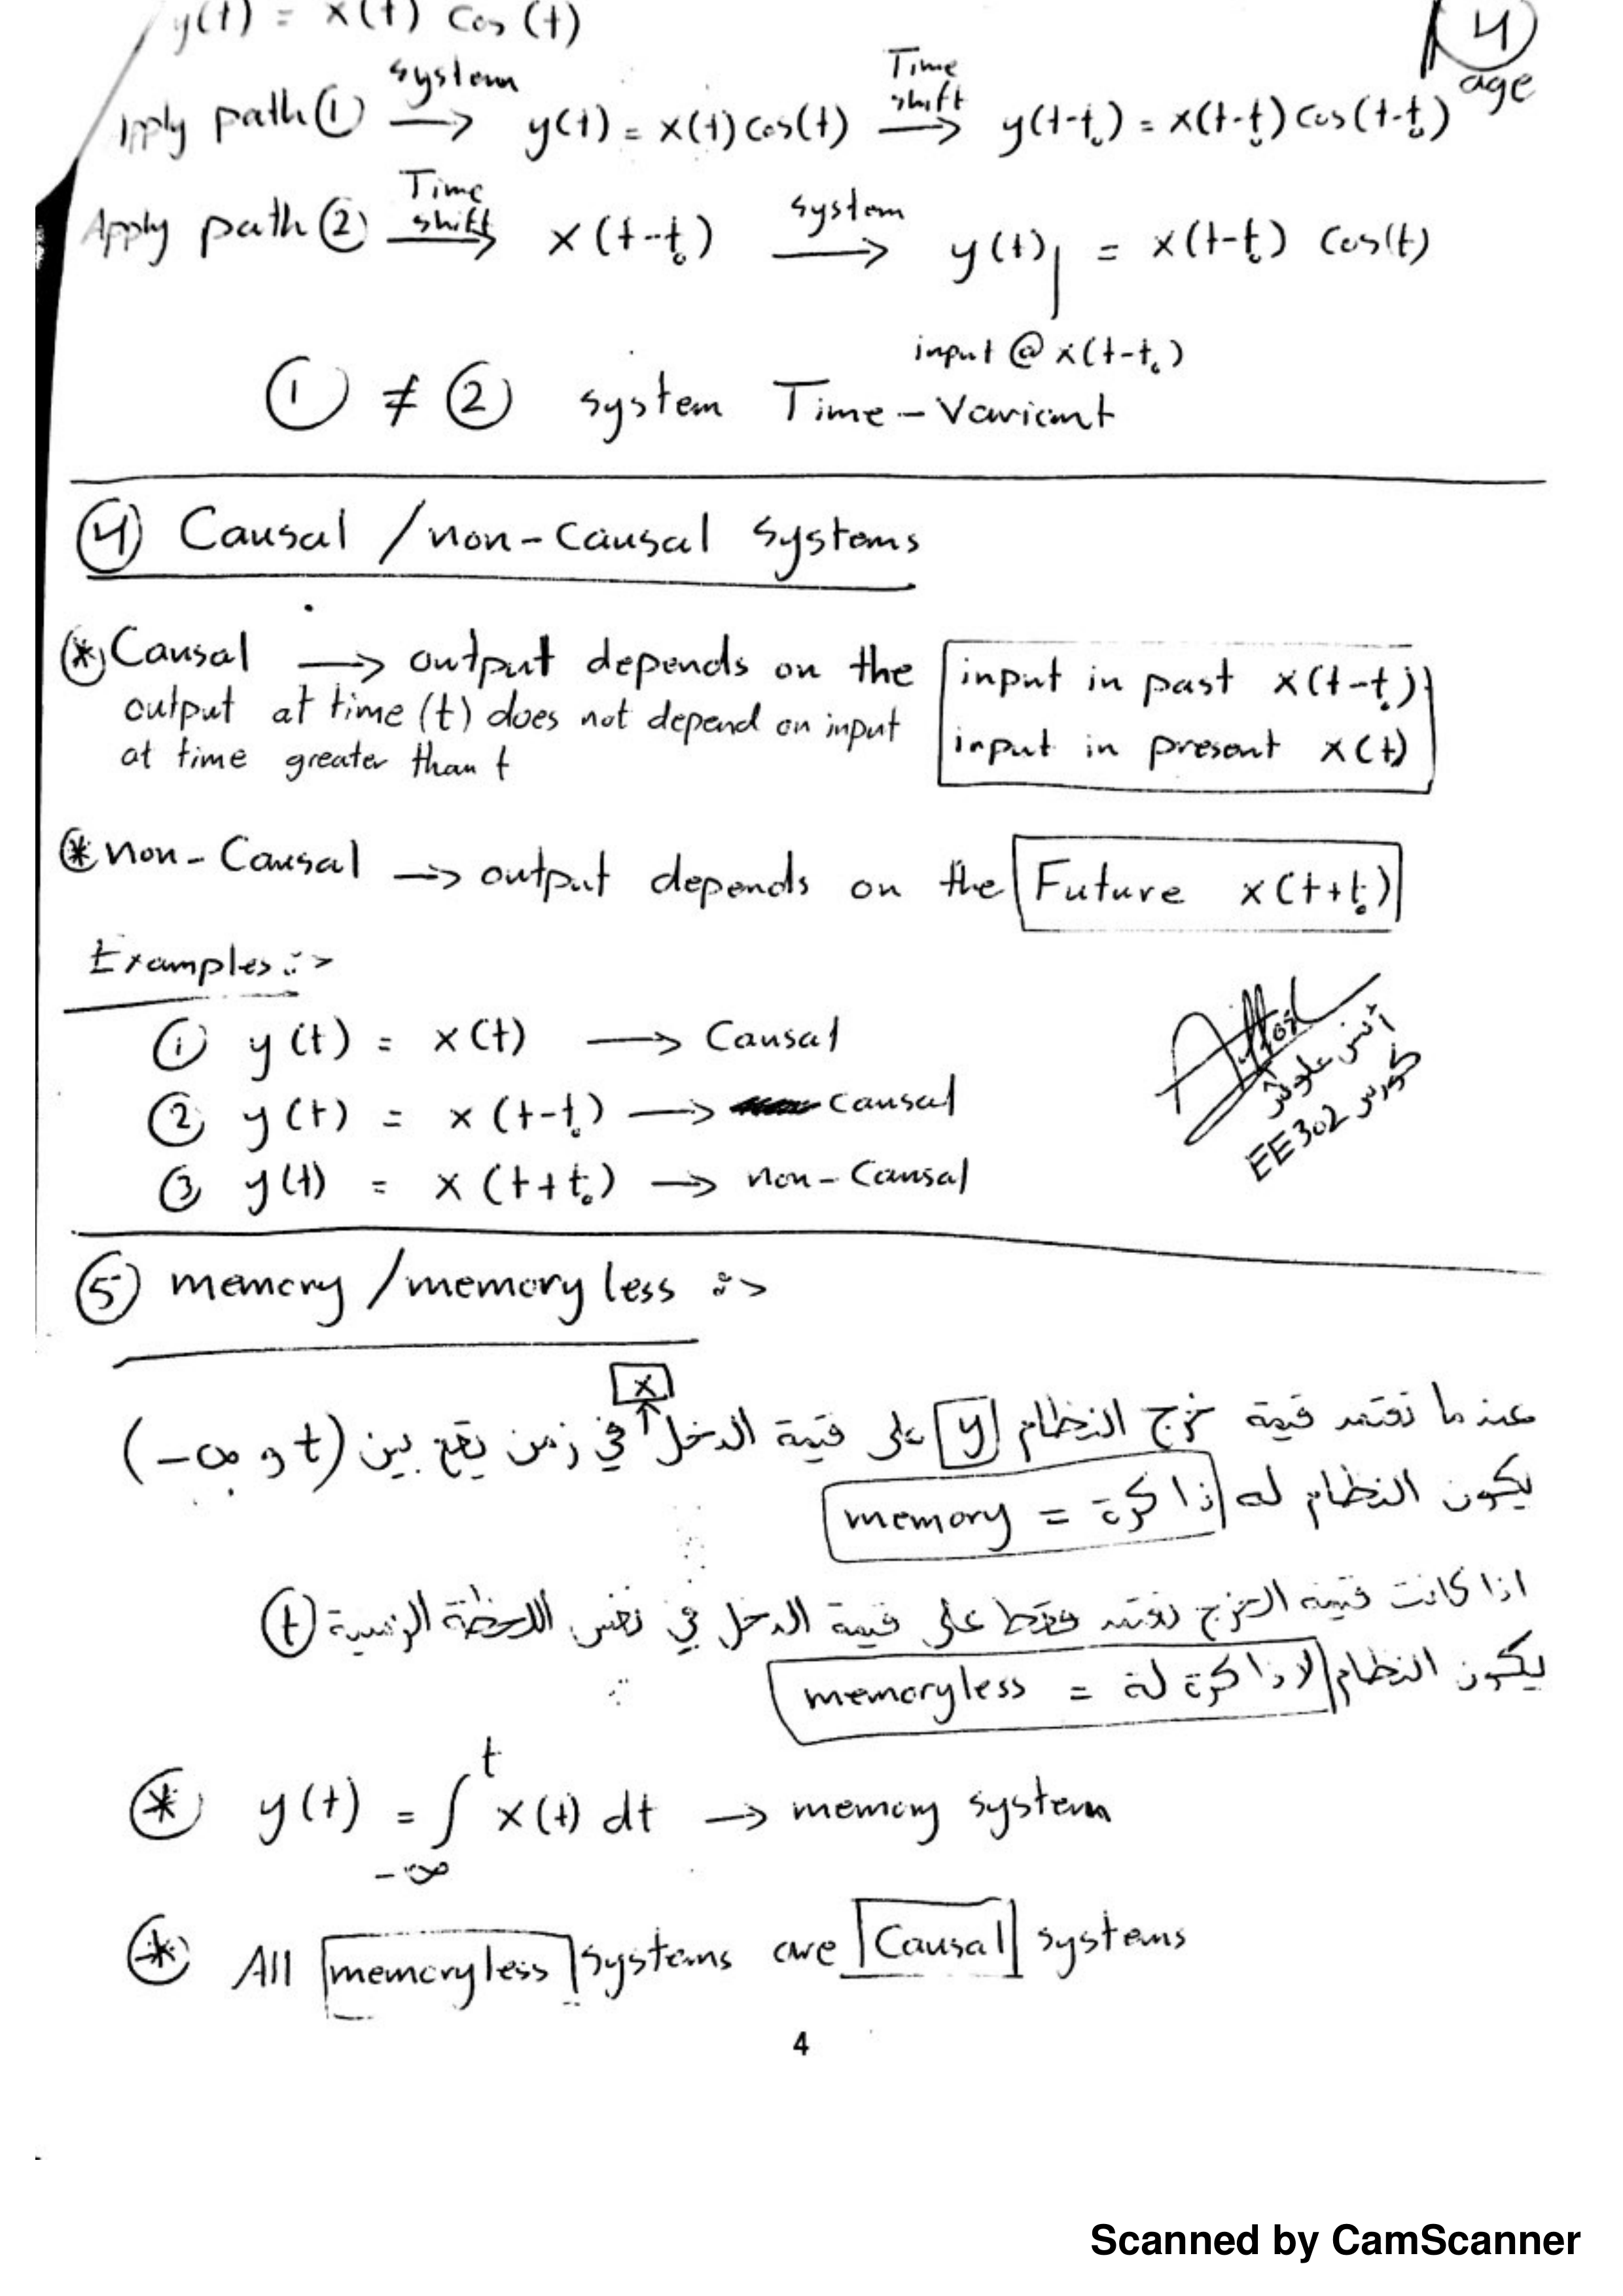 y(t) = x(t) cos(t)
4
age
pply path ① system → y(t) = x(t) cos(t) Time shift → y(t-t₀) = x(t-t₀) cos(t-t₀)
Apply path ② Time shift → x(t-t₀) system → y(t)| = x(t-t₀) cos(t)
input @ x(t-t₀)
① ≠ ② system Time-Variant
④ Causal / non-causal systems
* Causal → output depends on the input in past x(t-t₀)
output at time (t) does not depend on input
at time greater than t
input in present x(t)
* non-Causal → output depends on the Future x(t+t₀)
Examples :->
① y(t) = x(t) → Causal
② y(t) = x(t-t₀) → causal
③ y(t) = x(t+t₀) → non-Causal
أنس علوش
كورس EE302
⑤ memory / memoryless :->
x
عندما تعتمد قيمة خرج النظام y على قيمة الدخل في زمن يقع بين (-∞ و t)
يكون النظام له ذاكرة = memory
اذا كانت قيمة الخرج تعتمد فقط على قيمة الدخل في نفس اللحظة الزمنية (t)
يكون النظام لا ذاكرة له = memoryless
* y(t) = ∫_{-∞}^{t} x(t) dt → memory system
* All memoryless systems are Causal systems
4
Scanned by CamScanner